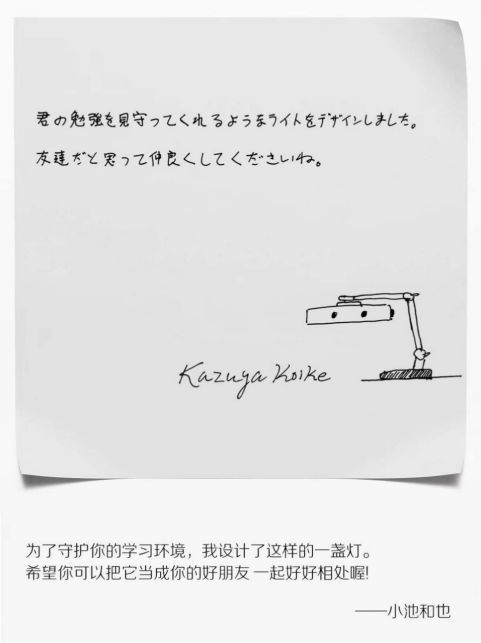 君の勉強を見守ってくれるようなライトをデザインしました。
友達だと思って仲良くしてくださいね。
Kazuya Koike
为了守护你的学习环境，我设计了这样的一盏灯。
希望你可以把它当成你的好朋友 一起好好相处喔!
——小池和也